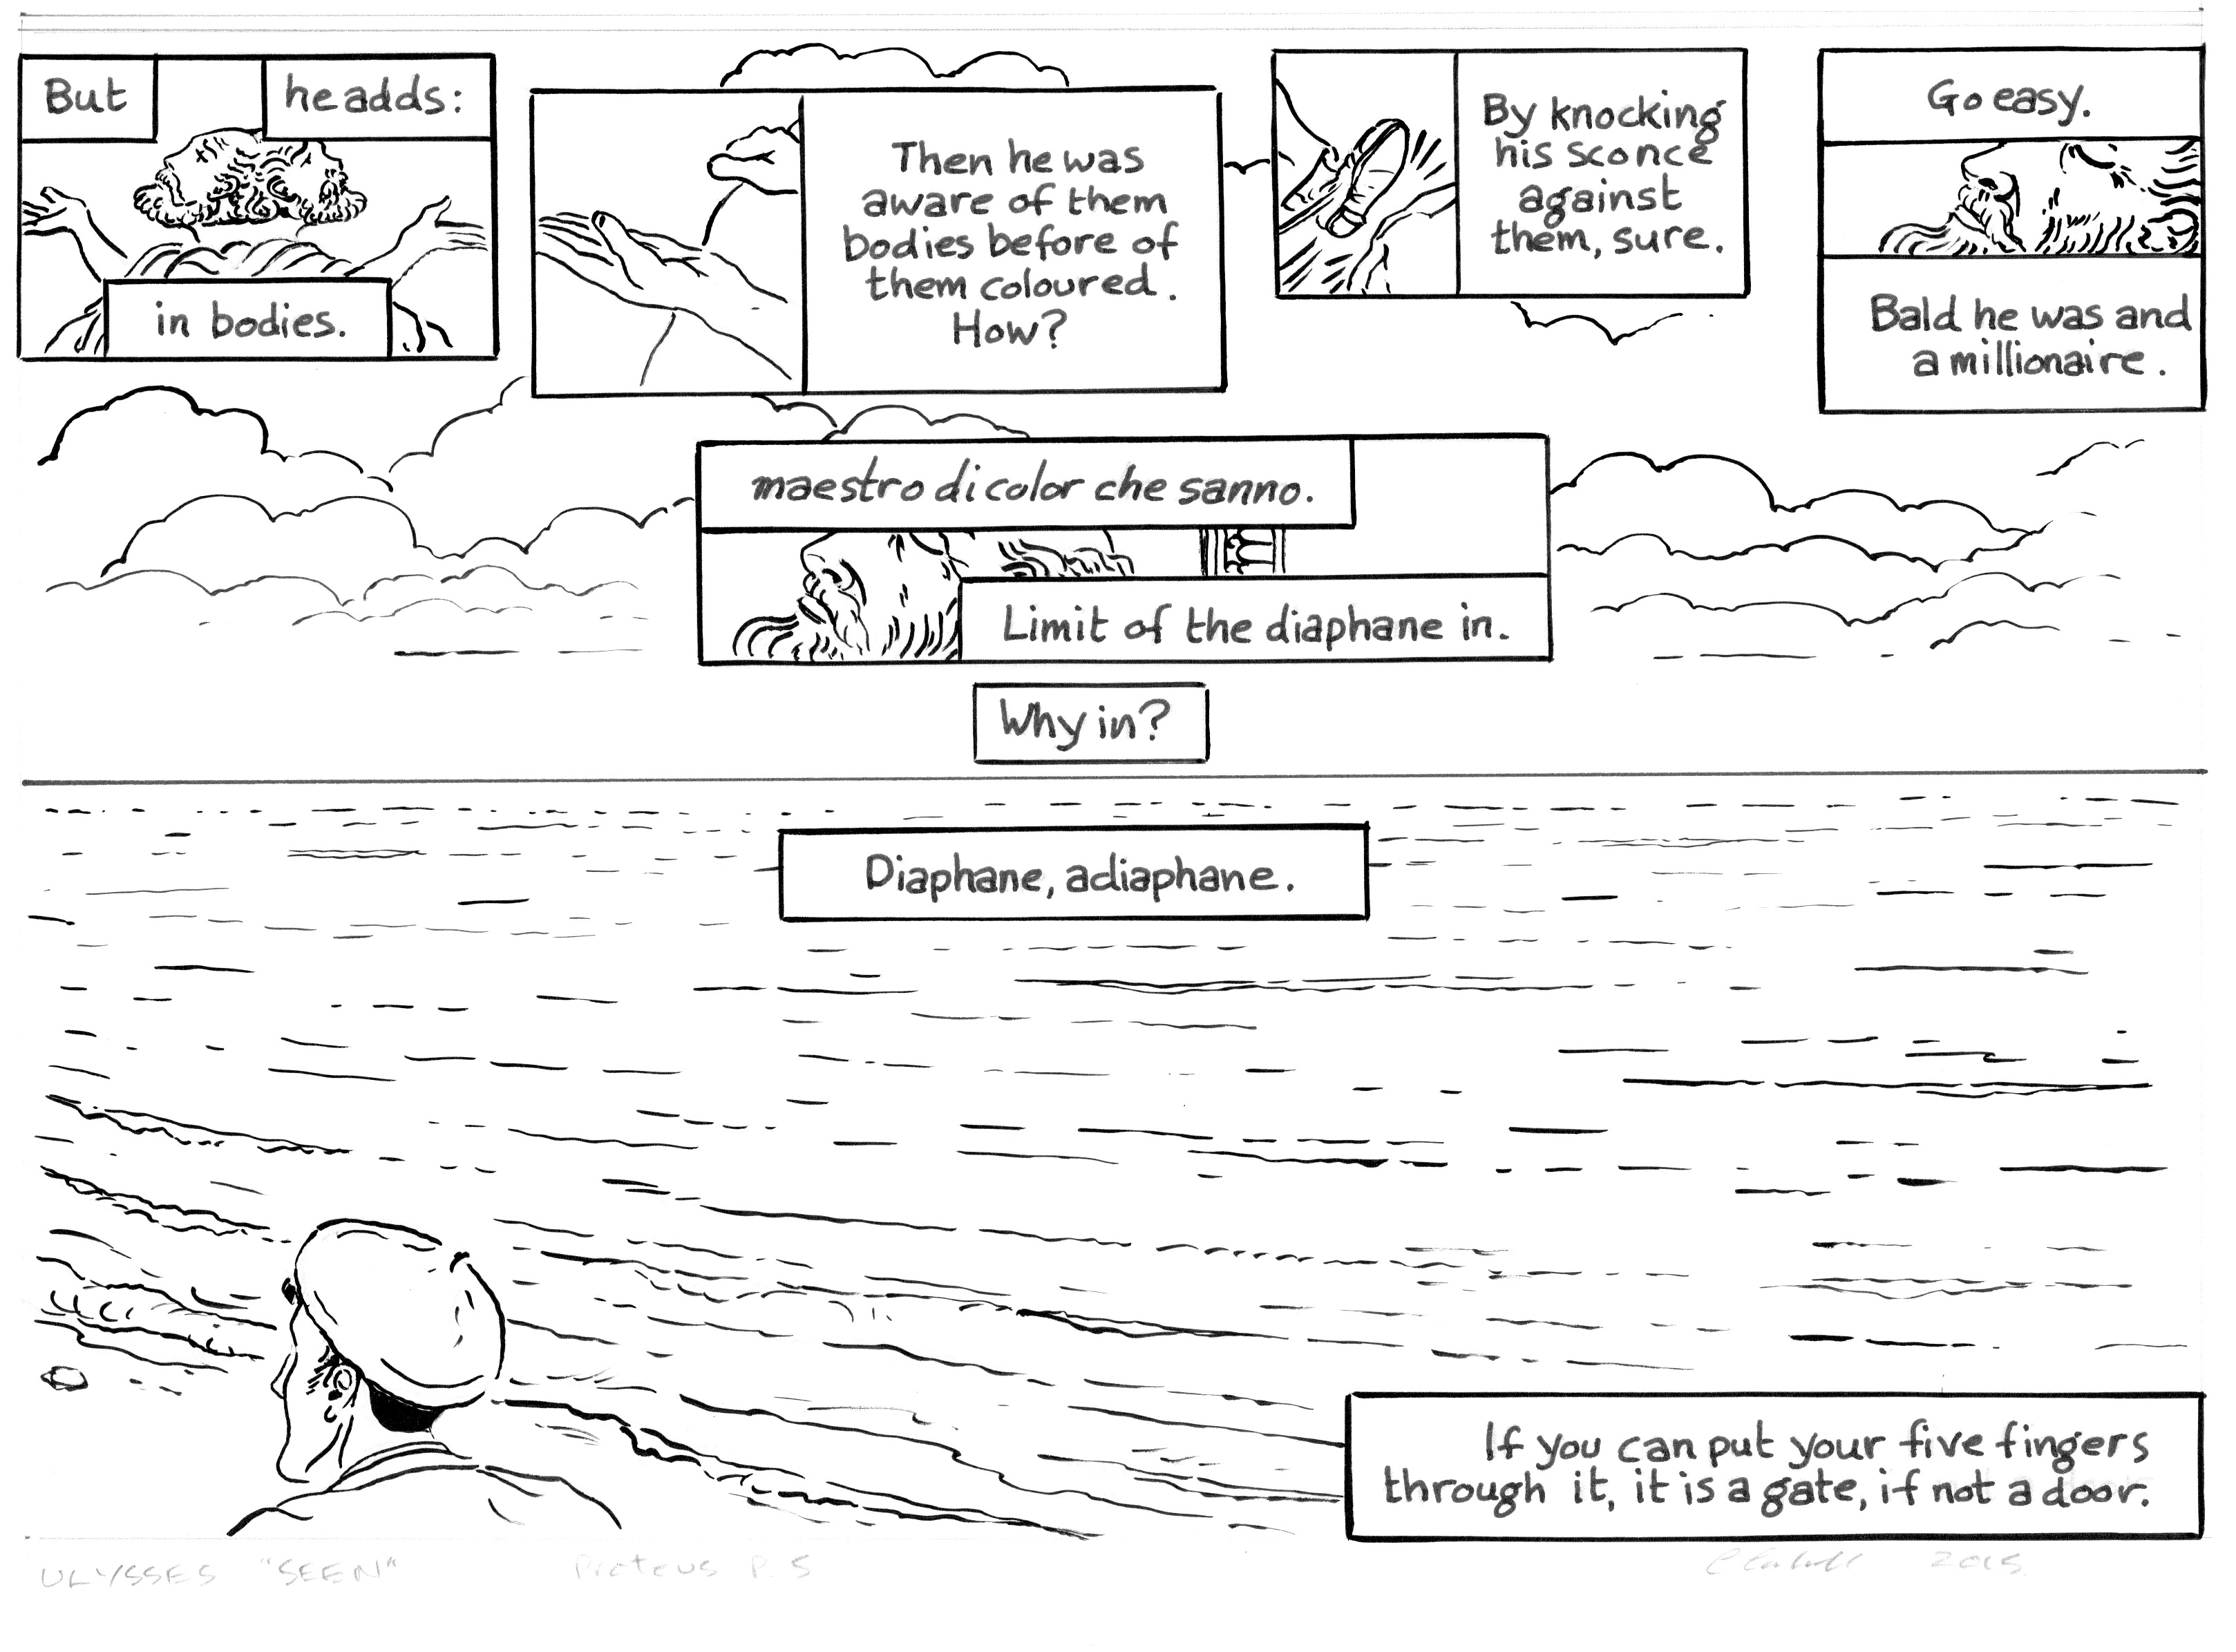 But
he adds:
in bodies.
Then he was
aware of them
bodies before of
them coloured.
How?
By knocking
his sconce
against
them, sure.
Go easy.
Bald he was and
a millionaire.
maestro di color che sanno.
Limit of the diaphane in.
Why in?
Diaphane, adiaphane.
If you can put your five fingers
through it, it is a gate, if not a door.
ULYSSES "SEEN"
Proteus P. 5
2015